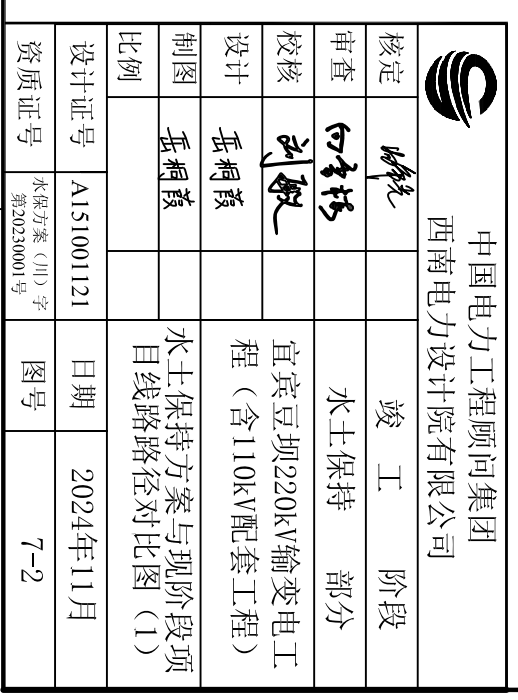 中国电力工程顾问集团
西南电力设计院有限公司
核定
竣 工 阶段
审查
水土保持 部分
校核 刘敏
宜宾豆坝220kV输变电工
程（含110kV配套工程）
设计 岳桐葭
制图 岳桐葭
水土保持方案与现阶段项
目线路路径对比图（1）
比例
设计证号 A151001121 日期 2024年11月
资质证号 水保方案（川）字
第20230001号 图号 7-2